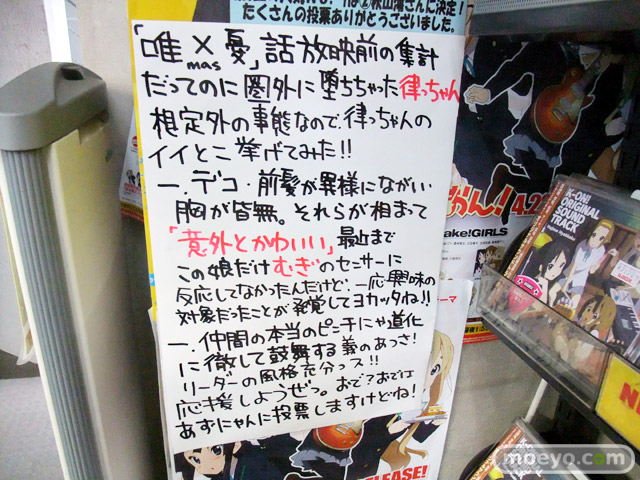 は②秋山澪さんに決定!
たくさんの投票ありがとうございました。
「唯×憂」話放映前の集計
mas
だってのに圏外に堕ちちゃった律っちゃん
想定外の事態なので、律っちゃんの
イイとこ挙げてみた!!
一.デコ・前髪が異様にながい
胸が皆無。それらが相まって
「意外とかわいい」最近まで
この娘だけむぎのセンサーに
反応してなかったんだけど、一応興味の
対象だったことが発覚してヨカッタね!!
一.仲間の本当のピンチにゃ道化
に徹して鼓舞する義のあつさ!
リーダーの風格充分っス!!
応援しようぜっ。おで?おでは
あずにゃんに投票しますけどね!
おん!
4.2
ake!GIRLS
K-ON!
ORIGINAL
SOUND
TRACK
テーマ
RELEASE!
N
moeyo.com